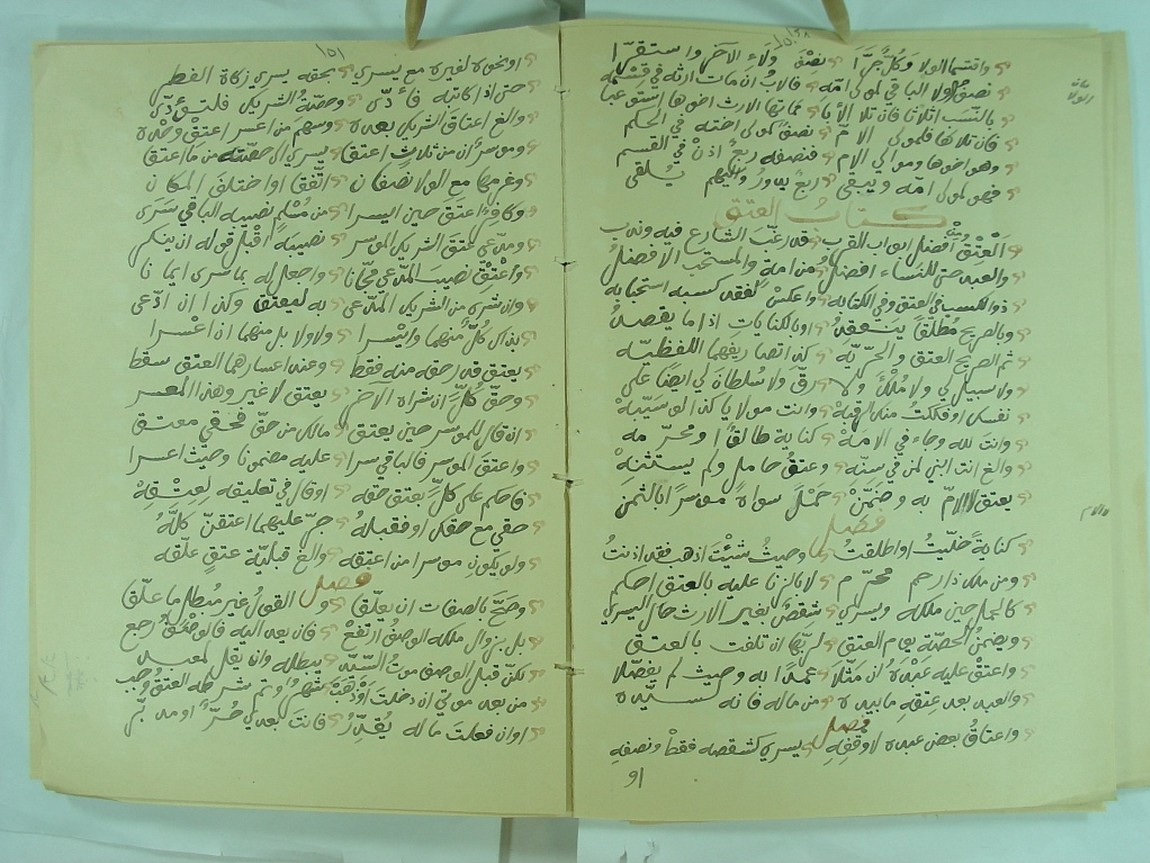 واقتسما الولا وكل جرا نصف ولاء الآخر واستقرا
نصف ولا الباقي لمولى امه فالاب ان مات ارثه في قسمه
بالنسب اثلاثا فان تلا الأبا
فان تلاها فلمولى الام نصف لمولى اخته في الحكم
وهو اخوها وموالي الام فنصفه ربع اذن في القسم
فهو لمولى امه ويبقى ربع يدور واليهم يلقى
كتاب العتق
العتق من أفضل ابواب القرب قد رغب الشارع فيه وندب
والعبد حتى للنساء افضل من امة والمستحب الافضل
ذو الكسب في العتق وفي الكتابه واعكس لفقد كسبه استحبابه
وبالصريح مطلقا ينعقد او بالكنايات اذا ما يقصد
ثم الصريح العتق والحريه كذا تصاريفهما اللفظيه
ولا سبيل لي ولا ملك ولا رق ولا سلطان لي ايضا على
نفسك او فككت منك الرقبه وانت مولاي كذا او سيبه
وانت لله وجاء في الامه كناية طالق او محرمه
والغ انت ابني لمن في سنه وعتق حامل ولم يستثنه
يعتق لا الام به وضمن حمل سواه موسرا بالثمن
فصل
كناية خليت او اطلقت وحيث شئت اذهب فقد اذنت
ومن ملك ذا رحم محرم لا بالزنا عليه بالعتق احكم
كالحمل حين ملكه ويسري شقص بغير الارث حال اليسر
ويضمن الحصة يوم العتق لربها ان تلفت بالعتق
واعتق عليه عبده ان مثلا عمدا به وحيث لم يفصلا
والعبد بعد عتقه ما بيده من ماله فانه لسيده
فصل
واعتاق بعض عبده لا وقفه يسري كشقصه فقط ونصفه
او
١٥١
او نحوه لغيره مع يسري بحقه يسري زكاة الفطر
حتى اذا كاتبه فأدى وحصة الشريك فلتؤدى
والغ اعتاق الشريك بعده وسهم من اعسر اعتق وحده
وموسر ان من ثلاث اعتقا يسري الى حصته من ما اعتقا
وغرمها مع الولا نصفان اتفقا او اختلف المكان
وكافر اعتق حين اليسرا من مسلم نصيبه الباقي سرى
ومدعي عتق الشريك الموسر نصيبه اقبل قوله ان ينكر
واعتق نصيب المدعي مجانا واجعل له بما سرى ايمانا
وان شرى من الشريك المدعي به ليعتق وكذا ان ادعى
بذاك كل منهما وايسرا ولا ولا بل منهما ان اعسرا
يعتق قدر حقه منه فقط وعند اعسارهما العتق سقط
وحق كل ان شراه الآخر يعتق لا غير وهذا المعسر
ان قال للموسر حين يعتق مالك من حق فحقي معتق
واعتق الموسر فالباقي سرا عليه مضمونا وحيث اعسرا
فاحكم على كل بعتق حقه او قال في تعليقه لعتقه
حقي مع حقك او فقبله جر عليهما اعتقن كله
ولو يكون موسرا من اعتقه والغ قبلية عتق علقه
فصل
وصح بالصفات ان يعلق والقول غير مبطل ما علق
بل بزوال ملكه الوصف ارتفع فان بعد اليه فالوصف رجع
لكن قبل الوصف موت السيد يبطله وان يقل لمعبد
من بعد موتي ان دخلت او ذهب شهر وتم شرطه العتق وجب
او ان فعلت ماله يقدر فانت بعدي حر او مدبر